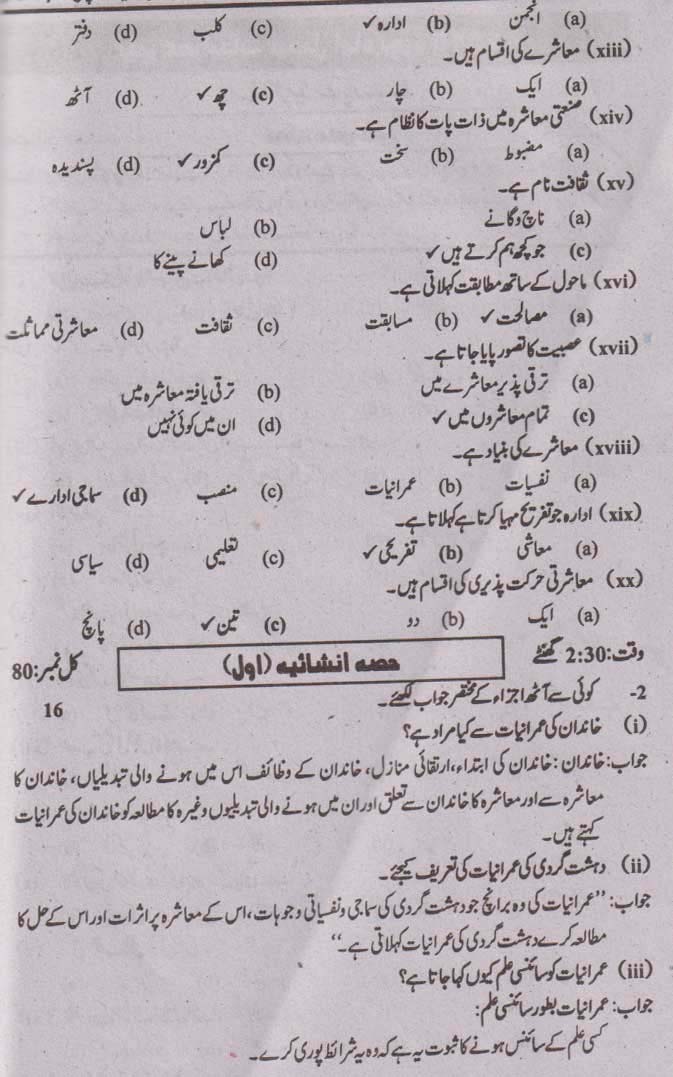 (a) انجمن (b) ادارہ ✓ (c) کلب (d) دفتر
(xiii) معاشرے کی اقسام ہیں۔
(a) ایک (b) چار (c) چھ ✓ (d) آٹھ
(xiv) صنعتی معاشرہ میں ذات پات کا نظام ہے۔
(a) مضبوط (b) سخت (c) کمزور ✓ (d) پسندیدہ
(xv) ثقافت نام ہے۔
(a) ناچ و گانے (b) لباس
(c) جو کچھ ہم کرتے ہیں ✓ (d) کھانے پینے کا
(xvi) ماحول کے ساتھ مطابقت کہلاتی ہے۔
(a) مصالحت ✓ (b) مسابقت (c) ثقافت (d) معاشرتی مماثلت
(xvii) عصبیت کا تصور پایا جاتا ہے۔
(a) ترقی پذیر معاشرے میں (b) ترقی یافتہ معاشرہ میں
(c) تمام معاشروں میں ✓ (d) ان میں کوئی نہیں
(xviii) معاشرے کی بنیاد ہے۔
(a) نفسیات (b) عمرانیات (c) منصب (d) سماجی ادارے ✓
(xix) ادارہ جو تفریح مہیا کرتا ہے کہلاتا ہے۔
(a) معاشی (b) تفریحی ✓ (c) تعلیمی (d) سیاسی
(xx) معاشرتی حرکت پذیری کی اقسام ہیں۔
(a) ایک (b) دو (c) تین ✓ (d) پانچ
وقت: 2:30 گھنٹے حصہ انشائیہ (اول) کل نمبر: 80
2- کوئی سے آٹھ اجزاء کے مختصر جواب لکھئے۔ 16
(i) خاندان کی عمرانیات سے کیا مراد ہے؟
جواب: خاندان: خاندان کی ابتداء، ارتقائی منازل، خاندان کے وظائف اس میں ہونے والی تبدیلیاں، خاندان کا
معاشرہ سے اور معاشرہ کا خاندان سے تعلق اور ان میں ہونے والی تبدیلیوں وغیرہ کا مطالعہ کو خاندان کی عمرانیات
کہتے ہیں۔
(ii) دہشت گردی کی عمرانیات کی تعریف کیجئے۔
جواب: ”عمرانیات کی وہ برانچ جو دہشت گردی کی سماجی و نفسیاتی وجوہات، اس کے معاشرہ پر اثرات اور اس کے حل کا
مطالعہ کرے دہشت گردی کی عمرانیات کہلاتی ہے۔“
(iii) عمرانیات کو سائنسی علم کیوں کہا جاتا ہے؟
جواب: عمرانیات بطور سائنسی علم:
کسی علم کے سائنس ہونے کا ثبوت یہ ہے کہ وہ یہ شرائط پوری کرے۔